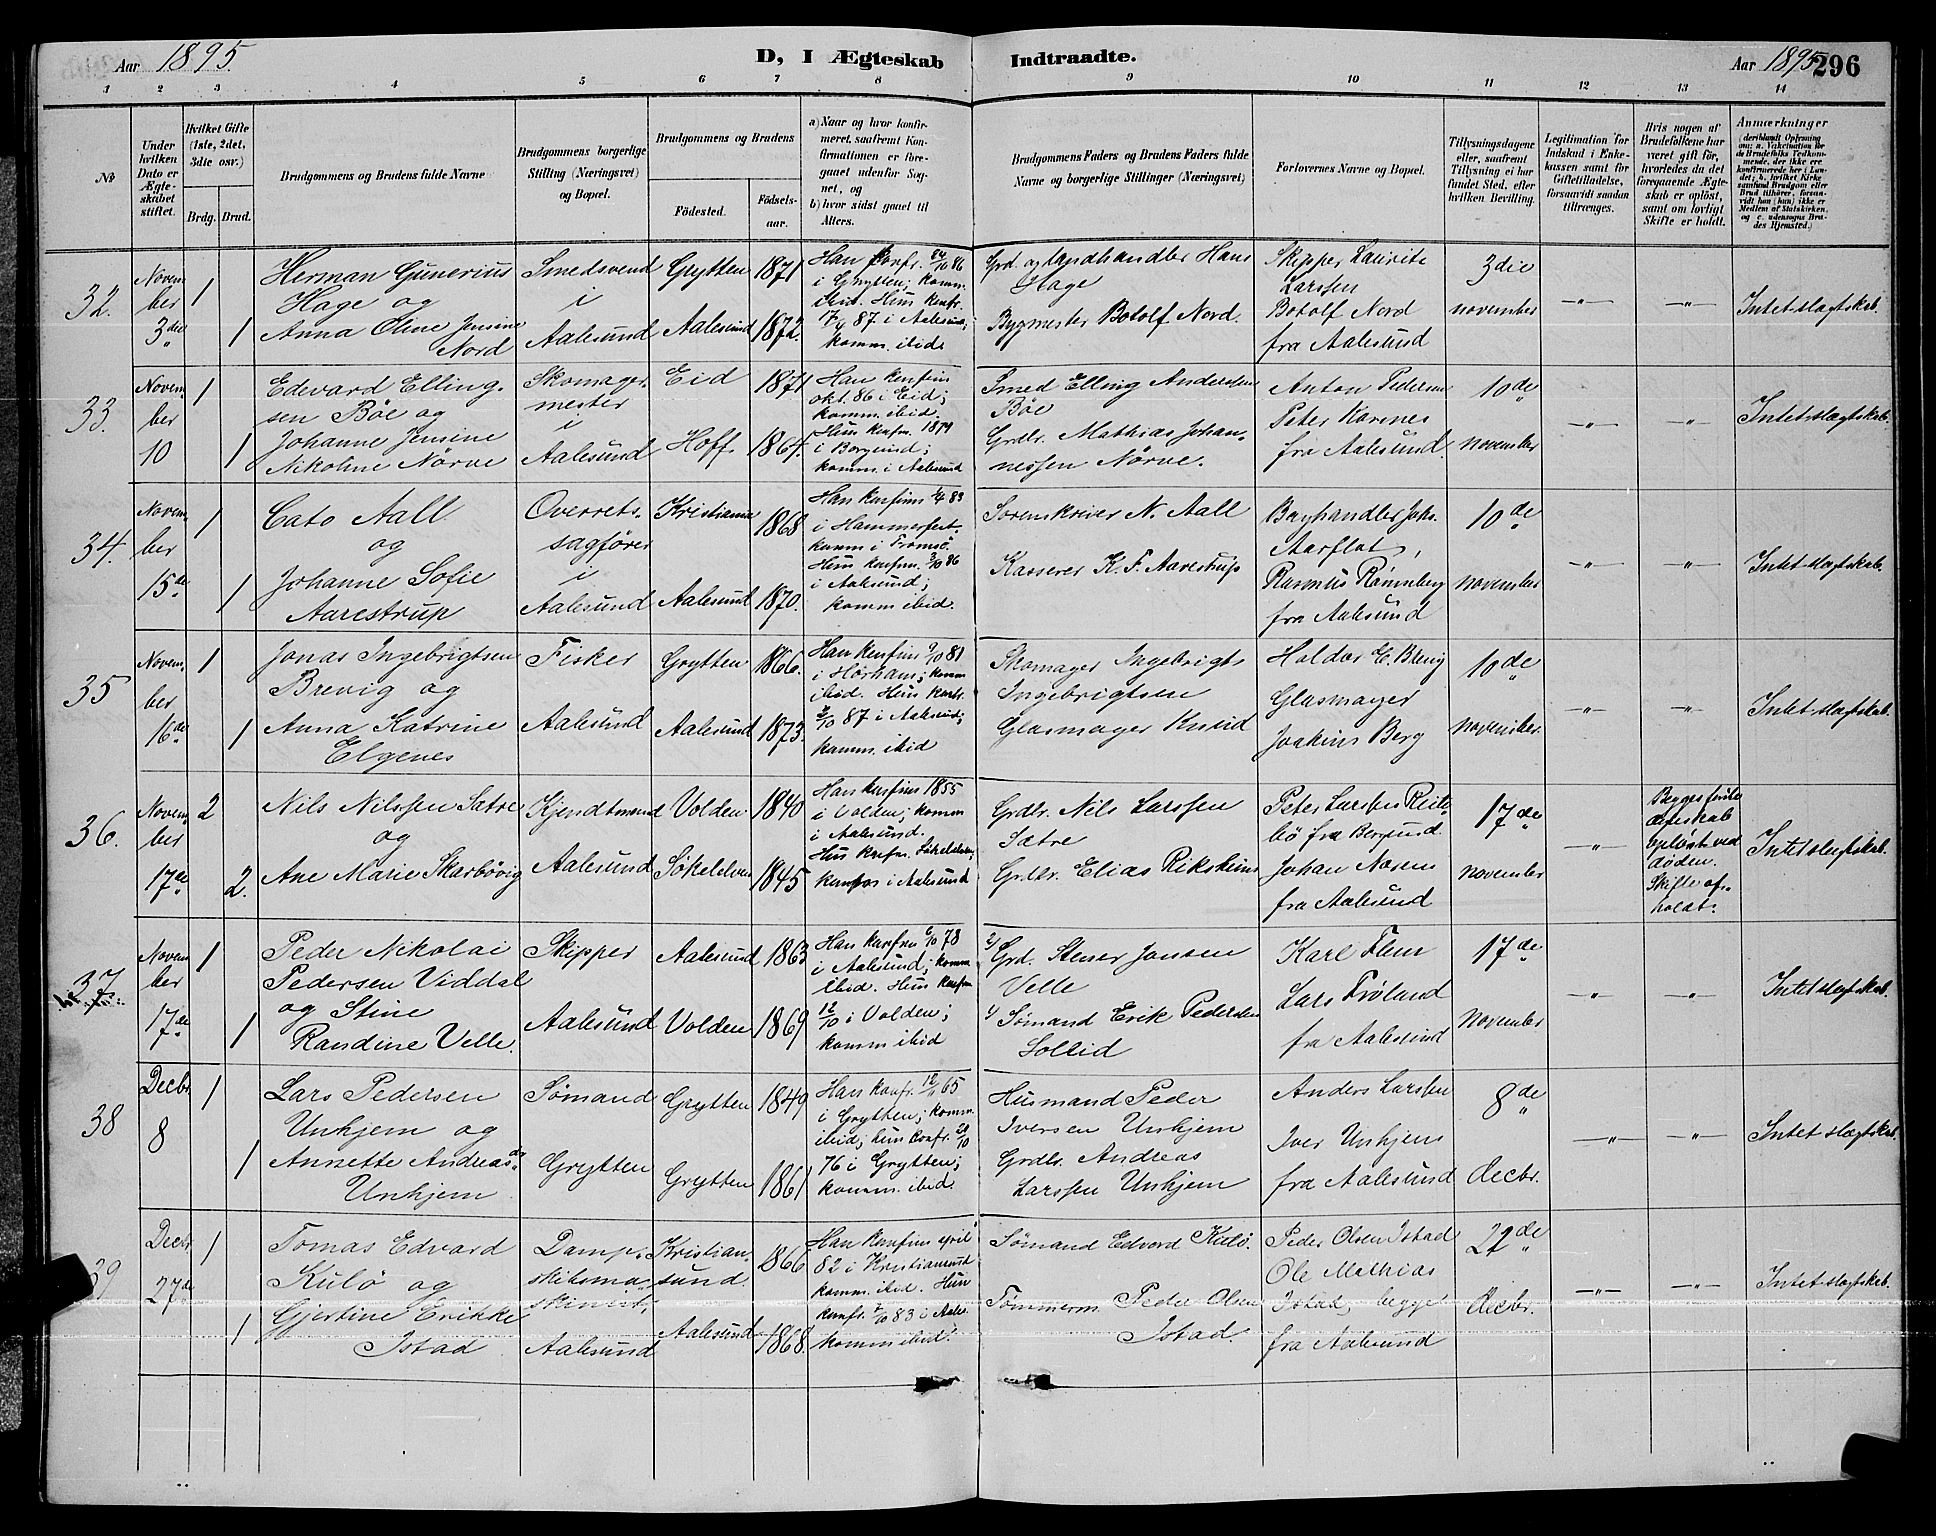 Aar 1895.
D, I Ægteskab Indtraadte.
Aar 1895
296
1 2 3 4 5 6 7 8 9 10 11 12 13 14
No
Under hvilken Dato er Ægteskabet stiftet.
Hvilket Gifte (1ste, 2det, 3die osv.)
Brdg. Brud.
Brudgommens og Brudens fulde Navne
Brudgommens borgerlige Stilling (Næringsvei) og Bopæl.
Brudgommens og Brudens
Fødested.
Fødselsaar.
a) Naar og hvor konfirmeret, saafremt Konfirmationen er foregaaet udenfor Sognet, og
b) hvor sidst gaaet til Alters.
Brudgommens Faders og Brudens Faders fulde Navne og borgerlige Stillinger (Næringsvei)
Forlovernes Navne og Bopæl.
Tillysningsdagene eller, saafremt Tillysning ei har fundet Sted, efter hvilken Bevilling.
Legitimation for Indskud i Enkekassen samt for Giftetilladelse, forsaavidt saadan tiltrænges.
Hvis nogen af Brudefolkene har været gift før, hvorledes da det foregaaende Ægteskab er opløst, samt om lovligt Skifte er holdt.
Anmærkninger (deriblandt Oplysning om: a. Vakcination for de Brudefolks Vedkommende, der ikke ere konfirmerede her i Landet; b. hvilket Kirkesamfund Brudgom eller Brud tilhører, forsaavidt han (hun) ikke er Medlem af Statskirken, og c. udensogns Brudes Hjemsted.)
32.
November
3die
1
1
Herman Gunerius
Hage og
Anna Oline Jensine
Nord
Smedsvend
i
Aalesund
Grytten
Aalesund
1871
1872.
Han konfr. 86
i Grytten; komm.
ibid. Hun konfr.
87 i Aalesund;
komm. ibid
Grd. og Landhandler Hans
Hage
Bygmester Botolf Nord.
Skipper Laurits
Larssen
Botolf Nord
fra Aalesund
3die
november
-"-
-"-
Intet slægtskab.
33.
November
10
1
1
Edevard Elling-
sen Böe og
Johanne Jensine
Nikoline Nörve
Skomager-
mester
i
Aalesund
Eid
Hoff
1871
1864.
Han konfirm
okt. 86 i Eid;
komm. ibid.
Hun konfrm. 1879
i Borgund;
komm. i Aalesund
Smed Elling Anderssen
Böe
Grdbr. Mathias Johan-
nessen Nörve.
Anton Pedersen
Peter
fra Aalesund.
10de
november
-"-
-"-
Intet slægtskab.
34.
November
15de
1
1
Cato Aall
og
Johanne Sofie
Aarestrup
Overrets-
sagförer
i
Aalesund
Kristiania
Aalesund
1868
1870.
Han konfirm 83
i Hammerfest.
komm i Tromsö.
Hun konfrm. 2/10 86
i Aalesund;
komm ibid.
Sorenskriver N. Aall
Kasserer K. F. Aarestrup
Boghandler Johs.
Aarflot,
Rasmus Rönneberg
fra Aalesund
10de
november
-"-
-"-
Intet slægtskab.
35
November
16de
1
1
Jonas Ingebrigtsen
Brevig og
Anna Katrine
Elgenes
Fisker
Aalesund
Grytten
Aalesund
1866.
1873.
Han konfirm 9/10 81
i komm
ibid. Hun konfr.
2/10 87 i Aalesund;
komm. ibid
Skomager Ingebrigt
Ingebrigtsen
Glasmager Knud
Haldor E.
Glasmager
Joakim Berg
10de
november.
-"-
-"-
Intet slægtskab.
36.
November
17de
2
2.
Nils Nilssen Sætre
og
Ane Marie Skarbövig
Kjendtmand
Aalesund
Volden
Sökelelven
1840
1845
Han konfirm 1855
i Volden; komm
i Aalesund.
Hun konfrm. Sökelelven,
i Aalesund
Grdbr. Nils Larssen
Sætre
Grdbr. Elias Riksheim
Peter Larssen Reite-
bö fra Borgund.
Johan
fra Aalesund
17de
november
-"-
Begges förste
ægteskab
oplöst ved
döden.
Skifte af-
holdt.
Intet slægtskab.
37
November
17de
1
1
Peder Nikolai
Pedersen Viddal
og Stine
Randine Velle.
Skipper
Aalesund
Aalesund
Volden
1863
1869
Han konfrm 6/10 78
i Aalesund; komm
ibid. Hun konfrm
12/10 i Volden;
komm ibid
2/ Grd. Stener Jonsen
Velle
1/ Sømand Erik Pedersen
Solled
Karl Flem
Lars Fröland
fra Aalesund
17de
November
-"-
-"-
Intet slægtskab.
38
Decbr.
8
1
1
Lars Pedersen
Unhjem og
Annette Andreasdr.
Unhjem
Sømand
Grytten
Grytten
Grytten
1849
1861
Han konfr. 65
i Grytten; komm.
ibid; hun konfr.
76 i Grytten;
komm. ibid.
Husmand Peder
Iversen Unhjem
Grdbr. Andreas
Larssen Unhjem
Anders Larssen
Iver Unhjem
fra Aalesund
8de
decbr.
-"-
-"-
Intet slægtskab.
39
Decbr
27de
1
1
Tomas Edvard
Kulö og
Gjertine Erikke
Istad
Damp-
skibsma-
skinist,
Aalesund
Kristian-
sund
Aalesund
1866
1868.
Han konfirm april
82 i Kristiansund
komm. ibid. Hun
konfr. 7/10 83 i Aales.
komm ibid.
Sømand Edvard Kulö.
Tømmerm. Peder Olsen
Istad
Peder Olsen Istad
Ole Mathias
Istad, begge
fra Aalesund
22de
decbr.
-"-
-"-
Intet slægtskab.